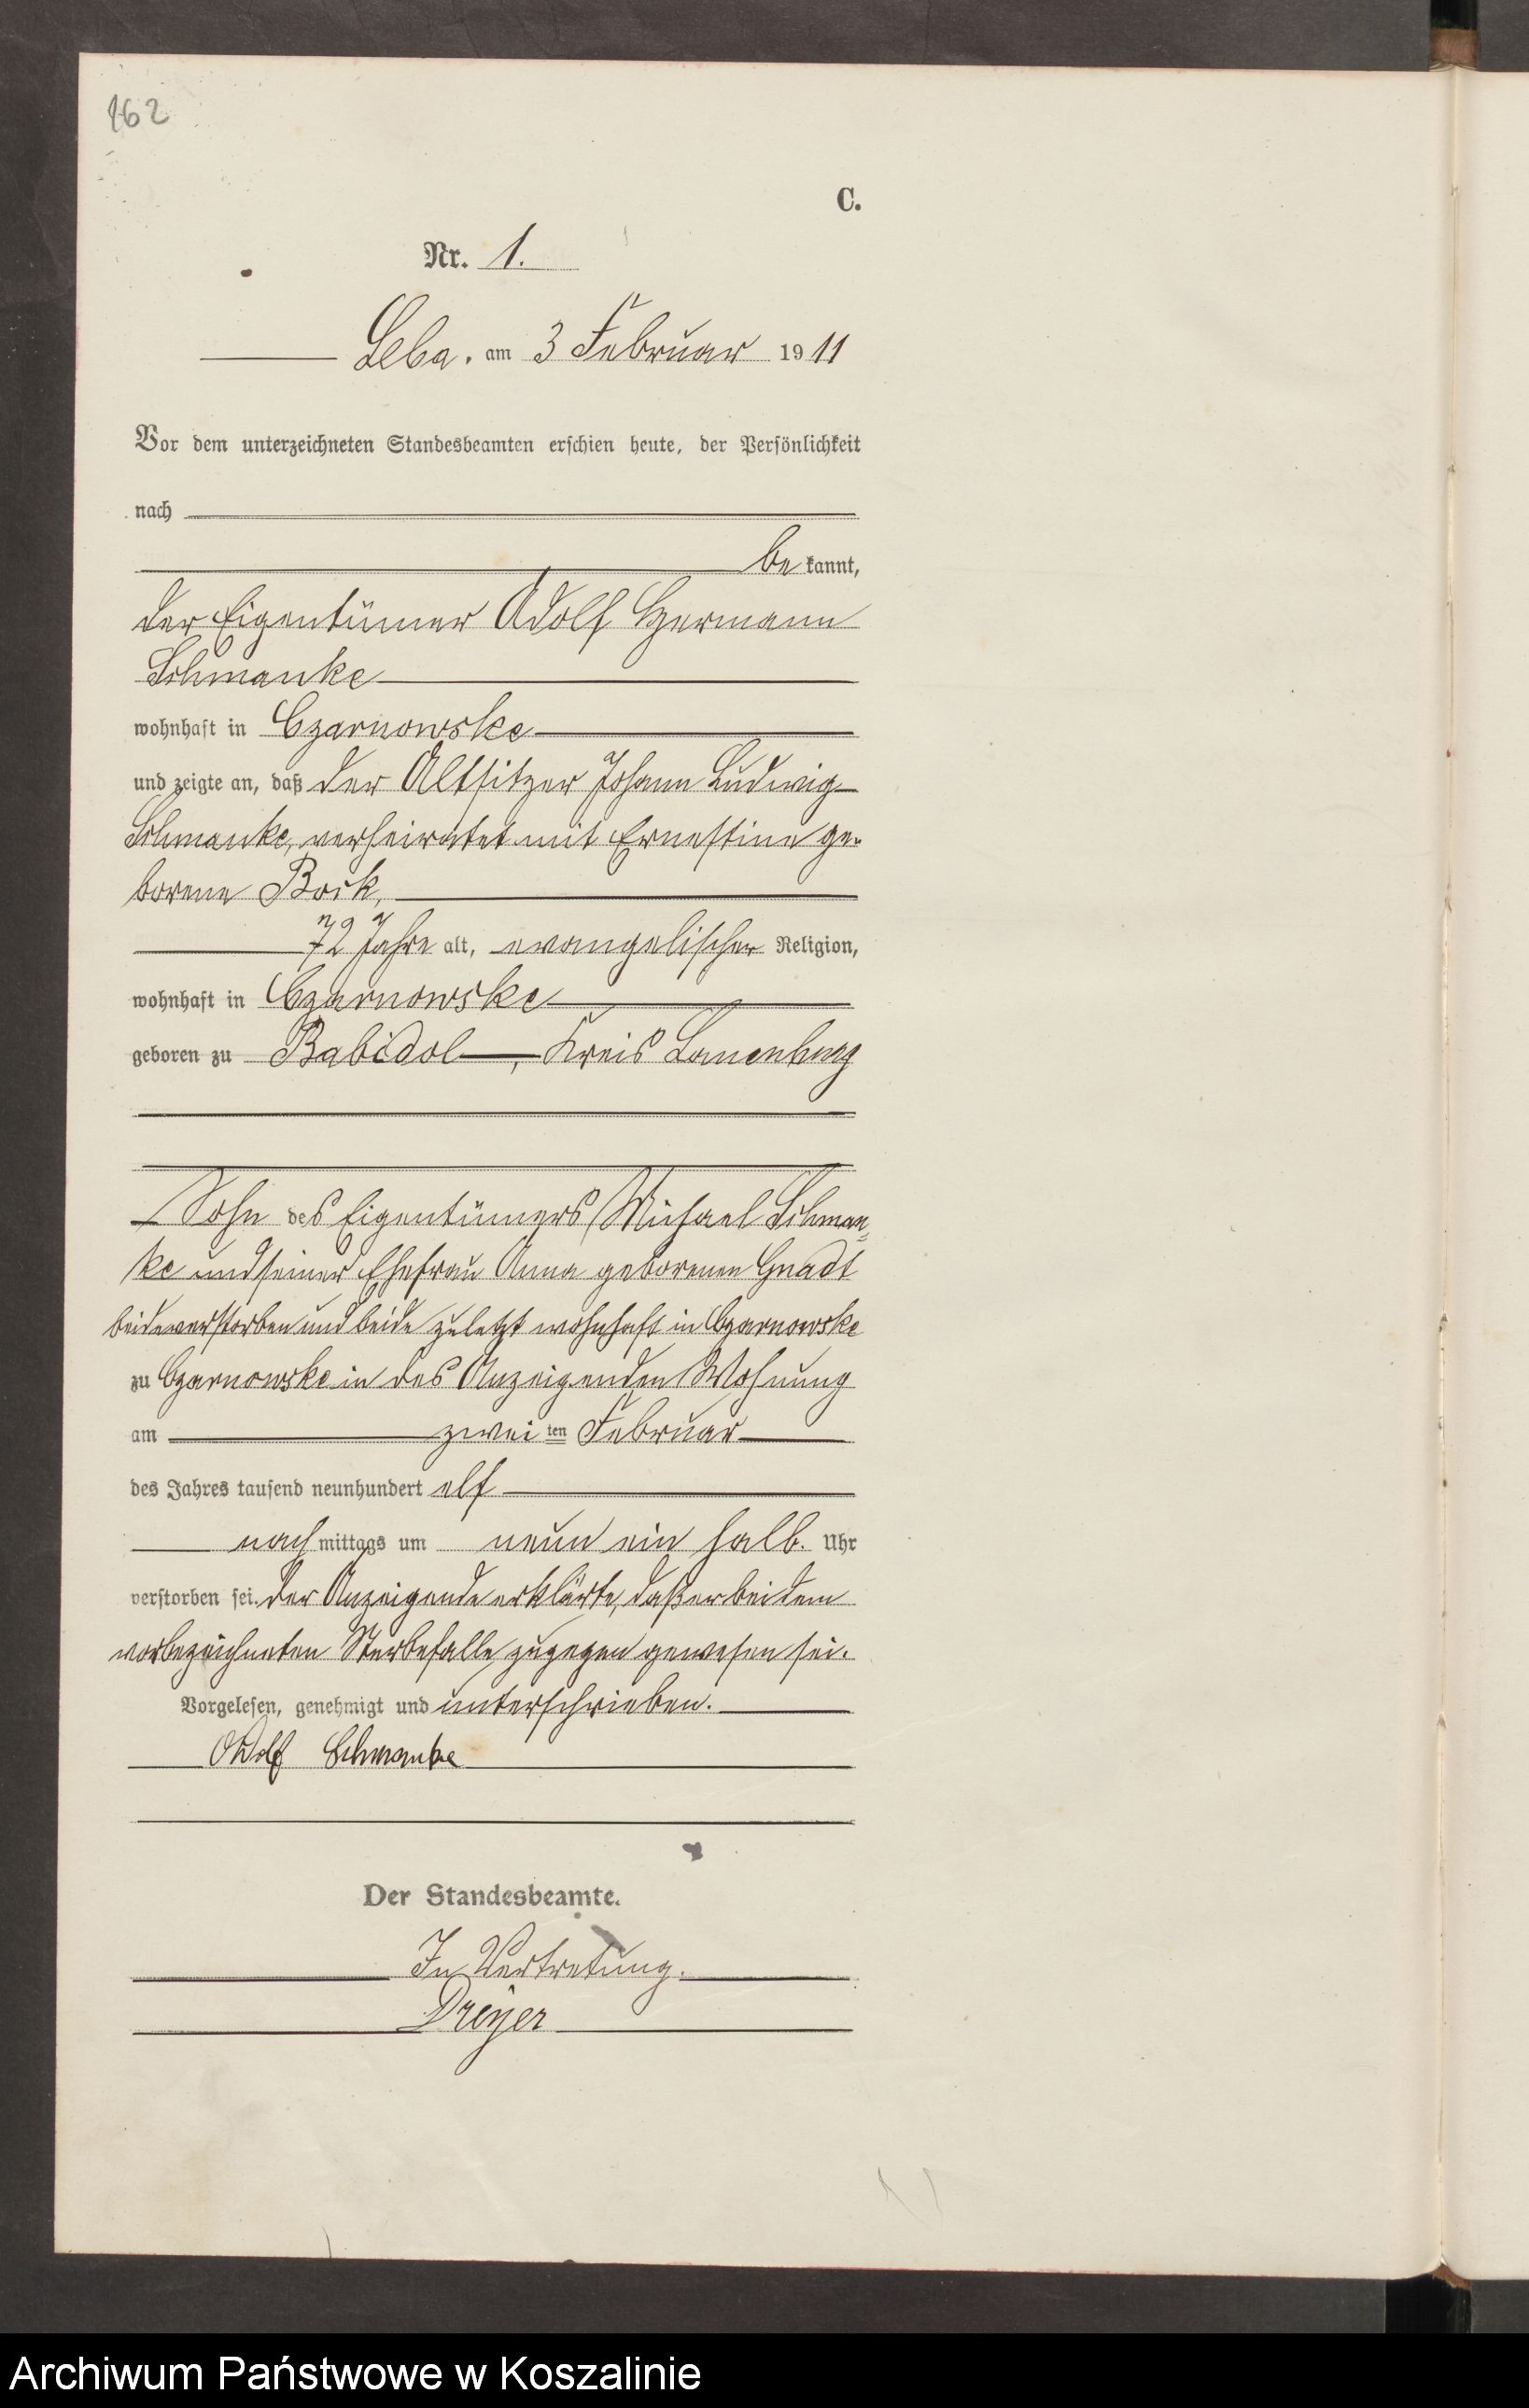 162
C.
Nr. 1.
Leba. am 3 Februar 1911
Vor dem unterzeichneten Standesbeamten erschien heute, der Persönlichkeit
nach
be kannt,
der Eigentümer Adolf Hermann
Schmanke
wohnhaft in Czarnowske
und zeigte an, daß der Altsitzer Johann Ludwig
Schmanke, verheiratet mit Ernestine ge-
borene Bock,
72 Jahre alt, evangelischer Religion,
wohnhaft in Czarnowske
geboren zu Babidol, Kreis Lauenburg
Sohn des Eigentümers Michael Schman=
ke und seiner Ehefrau Anna geborenen Gnadt
beide verstorben und beide zuletzt wohnhaft in Czarnowske
zu Czarnowske in des Anzeigenden Wohnung
am zwei ten Februar
des Jahres tausend neunhundert elf
nach mittags um neun ein halb. Uhr
verstorben sei. Der Anzeigende erklärte, daß er bei dem
vorbezeichneten Sterbefalle zugegen gewesen sei.
Vorgelesen, genehmigt und unterschrieben.
Adolf Schmanke
Der Standesbeamte.
In Vertretung.
Dreyer
Archiwum Państwowe w Koszalinie